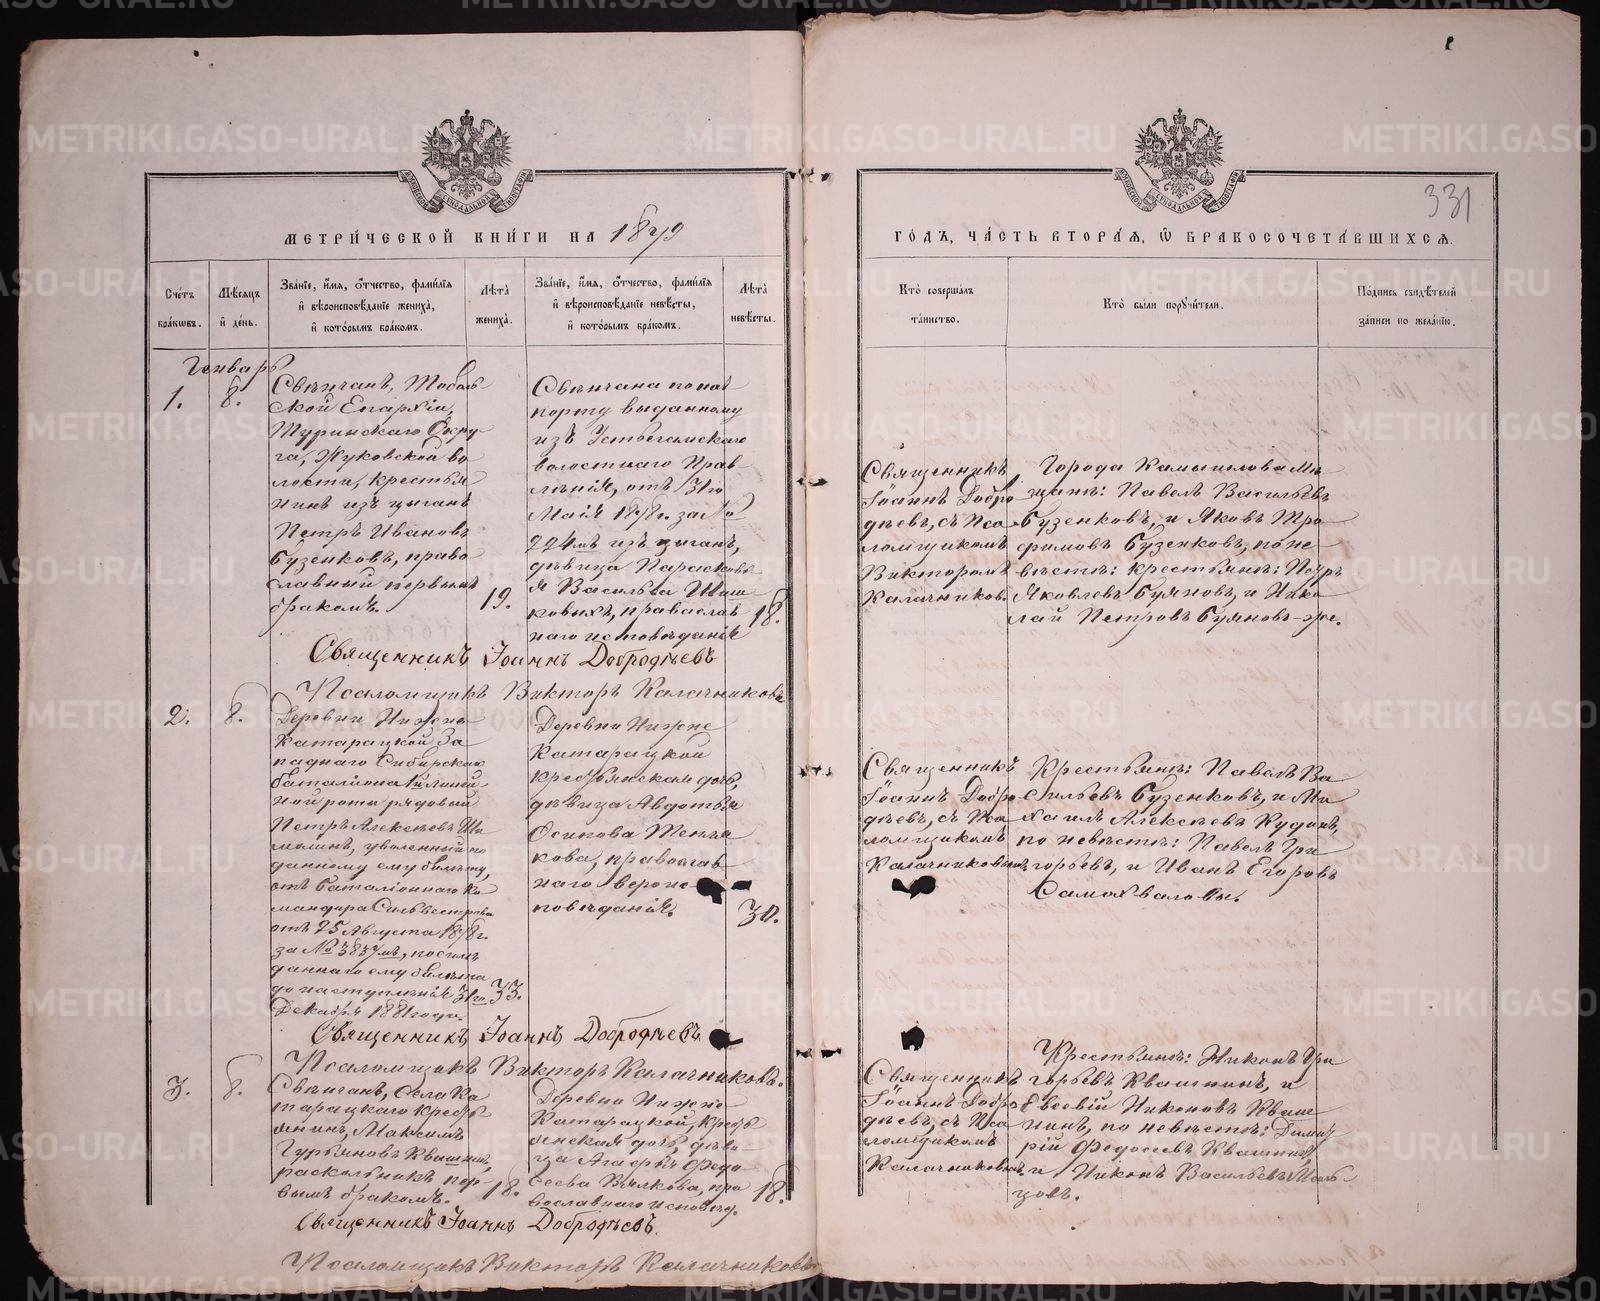 331
МЕТРИ́ЧЕСКОЙ КНИ́ГИ НА 1879
ГО́ДЪ, ЧА́СТЬ ВТОРА́Я, Ѽ БРАКОСОЧЕТА́ВШИХСЯ.
Сче́тъ бра́кѡвъ.
Мѣ́сяцъ и҆ де́нь.
Зва́нїе, и҆́мя, ѻ҆́тчество, фами́лїя
и҆ вѣроисповѣ́данїе жениха̀,
и҆ кото́рымъ бра́комъ.
Лѣта̀ жениха̀.
Зва́нїе, и҆́мя, ѻ҆́тчество, фами́лїя
и҆ вѣроисповѣ́данїе невѣ́сты,
и҆ кото́рымъ бра́комъ.
Лѣта̀ невѣ́сты.
Кто̀ соверша́лъ
та́инство.
Кто̀ бы́ли порꙋчи́тели.
По́дпись свидѣ́телей
за́писи по жела́нїю.
Генварь
1.
8.
Свѣнчанъ, Тоболь
ской Епархіи,
Туринскаго Окру-
га, Жуковской во
лости, крестья
нинъ изъ цыганъ
Петръ Ивановъ
Бузенковъ, право
славный первымъ
бракомъ.
19.
Свѣнчана по пас
порту выданному
изъ
волостнаго Прав
ленія, отъ 31го
Маія 1878г. за №
224мъ изъ цыганъ,
дѣвица Парасковь
я Васильева
ковыхъ, православ
наго исповѣданія
18.
Священникъ
Іоаннъ Добро
дѣевъ, съ Пса
ломщикомъ
Викторомъ
Калачников.
Города Камышлова Мѣ
щане: Павелъ Васильевъ
Бузенковъ, и Яковъ Тро
фимовъ Бузенковъ, по не
вѣстѣ: крестьяне: Петръ
Яковлевъ Буяновъ, и Нико
лай Петровъ Буяновъ-же.
Священникъ Іоаннъ Добродѣевъ
Псаломщикъ Викторъ Калачниковъ
2.
8.
Деревни Нижне
Катарацкой За
паднаго Сибирскаго
баталіона Линей
ной роты рядовый
Петръ Алексѣевъ
уволенный по
данному ему билету,
отъ Баталіоннаго Ко
мандира Сильвестрова
отъ 25 Августа 1878г.
за № 3837мъ, по силѣ
даннаго ему билета
до наступленія 31го
Декабря 1881 года.
33.
Деревни Нижне
Катарацкой
крестьянская дочь,
дѣвица Авдотья
Осипова
кова, православ
наго вероис
повѣданія.
30.
Священникъ
Іоаннъ Добро
дѣевъ, съ Пса
ломщикомъ
Калачниковымъ
Крестьяне: Павелъ Ва
сильевъ Бузенковъ, и Ми
хаилъ Алексѣевъ Кудинъ,
по невѣстѣ: Павелъ Гри
горьевъ, и Иванъ Егоровъ
Самохваловы.
Священникъ Іоаннъ Добродѣевъ
Псаломщикъ Викторъ Калачниковъ.
3.
8.
Свѣнчанъ, Села Ка
тарацкаго кресть
янинъ, Максимъ
Гурьяновъ Квашнинъ,
раскольникъ пер
вымъ бракомъ.
18.
Деревни Нижне
Катарацкой, кресть
янская дочь, дѣви-
ца Агафья Федо
сеева Вялкова, пра
вославнаго исповѣд.
18.
Священникъ
Іоаннъ Добро
дѣевъ, съ Пса
ломщикомъ
Калачниковымъ
Крестьяне: Никонъ Гри
горьевъ Квашнинъ, и
Евсевій Никоновъ Кваш
нинъ, по невѣстѣ: Димит
рій Федосеевъ Квашнинъ
и Никонъ Васильевъ Маль-
цовъ.
Священникъ Іоаннъ Добродѣевъ.
Псаломщикъ Викторъ Калачниковъ
METRIKI.GASO-URAL.RU